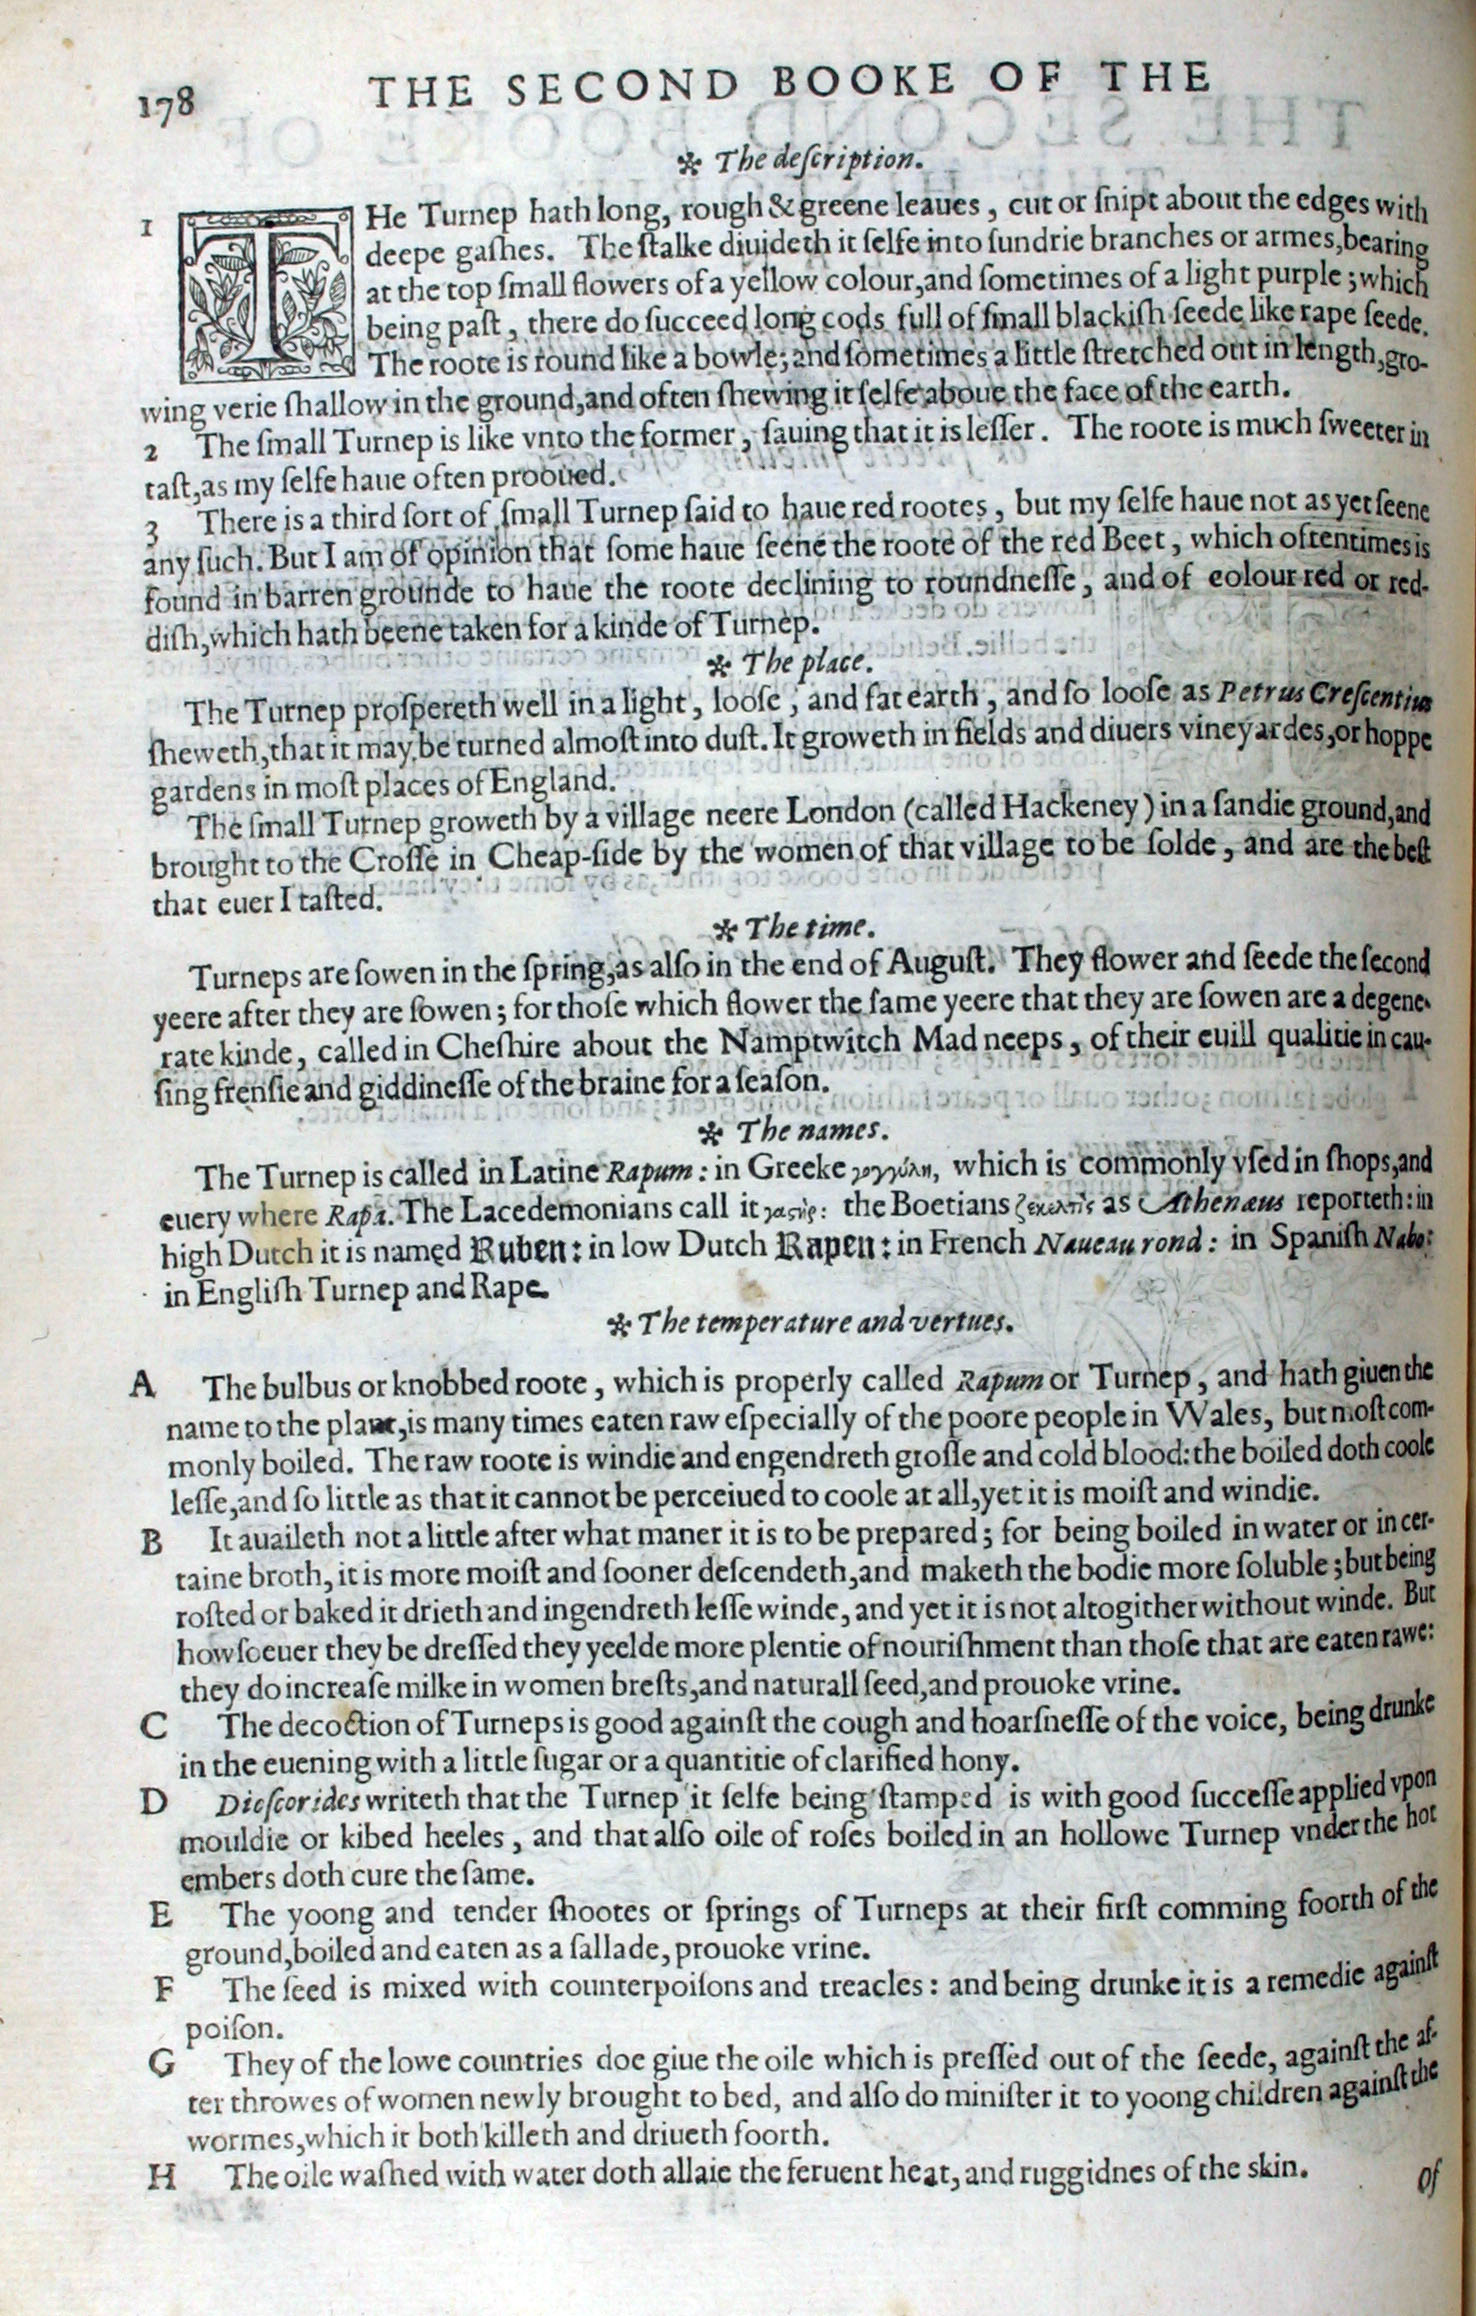 178 THE SECOND BOOKE OF THE
✲ The deſcription.
1 THe Turnep hath long, rough & greene leaues, cut or ſnipt about the edges with
deepe gaſhes. The ſtalke diuideth it ſelfe into ſundrie branches or armes, bearing
at the top ſmall flowers of a yellow colour, and ſometimes of a light purple; which
being paſt, there do ſucceed long cods full of ſmall blackiſh ſeede like rape ſeede.
The roote is round like a bowle; and ſometimes a little ſtretched out in length, gro-
wing verie ſhallow in the ground, and often ſhewing it ſelfe aboue the face of the earth.
2 The ſmall Turnep is like vnto the former, ſauing that it is leſſer. The roote is much ſweeter in
taſt, as my ſelfe haue often prooued.
3 There is a third ſort of ſmall Turnep ſaid to haue red rootes, but my ſelfe haue not as yet ſeene
any ſuch. But I am of opinion that ſome haue ſeene the roote of the red Beet, which oftentimes is
found in barren grounde to haue the roote declining to roundneſſe, and of colour red or red-
diſh, which hath beene taken for a kinde of Turnep.
✲ The place.
The Turnep proſpereth well in a light, looſe, and fat earth, and ſo looſe as Petrus Creſcentius
ſheweth, that it may be turned almoſt into duſt. It groweth in fields and diuers vineyardes, or hoppe
gardens in moſt places of England.
The ſmall Turnep groweth by a village neere London (called Hackeney) in a ſandie ground, and
brought to the Croſſe in Cheap-ſide by the women of that village to be ſolde, and are the beſt
that euer I taſted.
✲ The time.
Turneps are ſowen in the ſpring, as alſo in the end of Auguſt. They flower and ſeede the ſecond
yeere after they are ſowen; for thoſe which flower the ſame yeere that they are ſowen are a degene-
rate kinde, called in Cheſhire about the Namptwitch Mad neeps, of their euill qualitie in cau-
ſing frenſie and giddineſſe of the braine for a ſeaſon.
✲ The names.
The Turnep is called in Latine Rapum: in Greeke γογγύλη, which is commonly vſed in ſhops, and
euery where Rapa. The Lacedemonians call it the Boetians as Athenæus reporteth: in
high Dutch it is named Ruben: in low Dutch Rapen: in French Naueau rond: in Spaniſh Nabo:
in Engliſh Turnep and Rape.
✲ The temperature and vertues.
A The bulbus or knobbed roote, which is properly called Rapum or Turnep, and hath giuen the
name to the plant, is many times eaten raw eſpecially of the poore people in Wales, but moſt com-
monly boiled. The raw roote is windie and engendreth groſſe and cold blood: the boiled doth coole
leſſe, and ſo little as that it cannot be perceiued to coole at all, yet it is moiſt and windie.
B It auaileth not a little after what maner it is to be prepared; for being boiled in water or in cer-
taine broth, it is more moiſt and ſooner deſcendeth, and maketh the bodie more ſoluble; but being
roſted or baked it drieth and ingendreth leſſe winde, and yet it is not altogither without winde. But
howſoeuer they be dreſſed they yeelde more plentie of nouriſhment than thoſe that are eaten rawe:
they do increaſe milke in women breſts, and naturall ſeed, and prouoke vrine.
C The decoction of Turneps is good againſt the cough and hoarſneſſe of the voice, being drunke
in the euening with a little ſugar or a quantitie of clarified hony.
D Dioſcorides writeth that the Turnep it ſelfe being ſtamped is with good ſucceſſe applied vpon
mouldie or kibed heeles, and that alſo oile of roſes boiled in an hollowe Turnep vnder the hot
embers doth cure the ſame.
E The yoong and tender ſhootes or ſprings of Turneps at their firſt comming foorth of the
ground, boiled and eaten as a ſallade, prouoke vrine.
F The ſeed is mixed with counterpoiſons and treacles: and being drunke it is a remedie againſt
poiſon.
G They of the lowe countries doe giue the oile which is preſſed out of the ſeede, againſt the af-
ter throwes of women newly brought to bed, and alſo do miniſter it to yoong children againſt the
wormes, which it both killeth and driueth foorth.
H The oile waſhed with water doth allaie the feruent heat, and ruggidnes of the skin.
Of